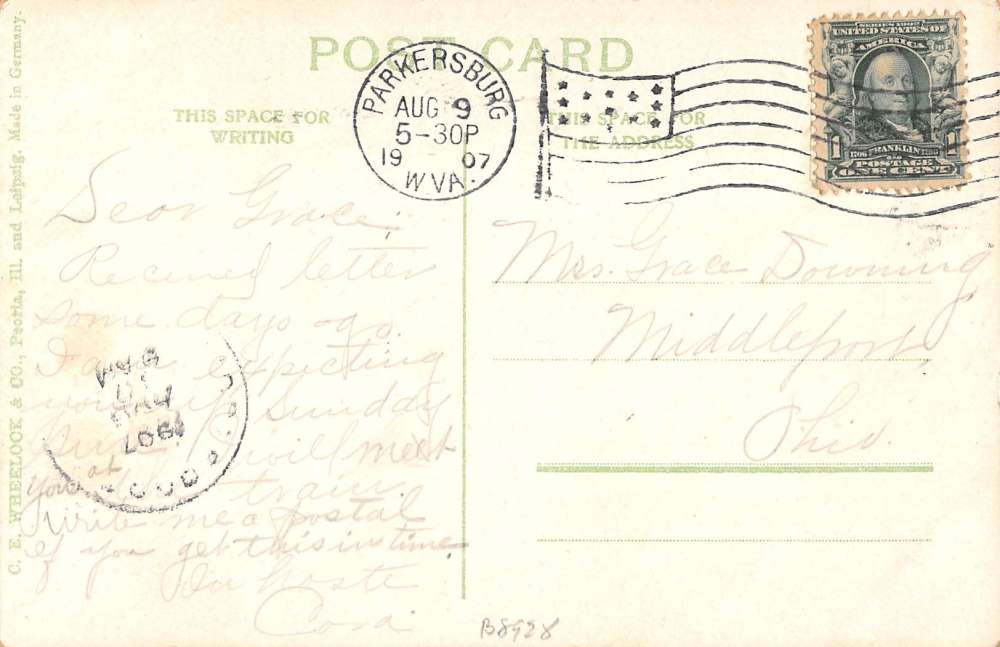 POST CARD
THIS SPACE FOR
WRITING
THIS SPACE FOR
THE ADDRESS
PARKERSBURG
AUG 9
5-30P
19 07
W VA.
SERIES 1902
UNITED STATES OF
AMERICA
1 FRANKLIN 1
POSTAGE
ONE CENT
Dear Grace.
Received letter
some days ago.
I am expecting
you up Sunday
sure I will meet
you at train
write me a postal
if you get this in time
In haste
Cora
Mrs. Grace Downing
Middleport,
Ohio.
AUG
10
8 AM
1907
C. E. WHEELOCK & CO., Peoria, Ill. and Leipzig. Made in Germany.
B8928